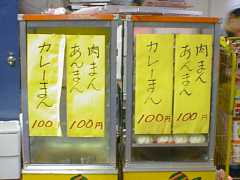 肉まん
あんまん
カレーまん
100
100円
肉まん
あんまん
カレーまん
100
100円